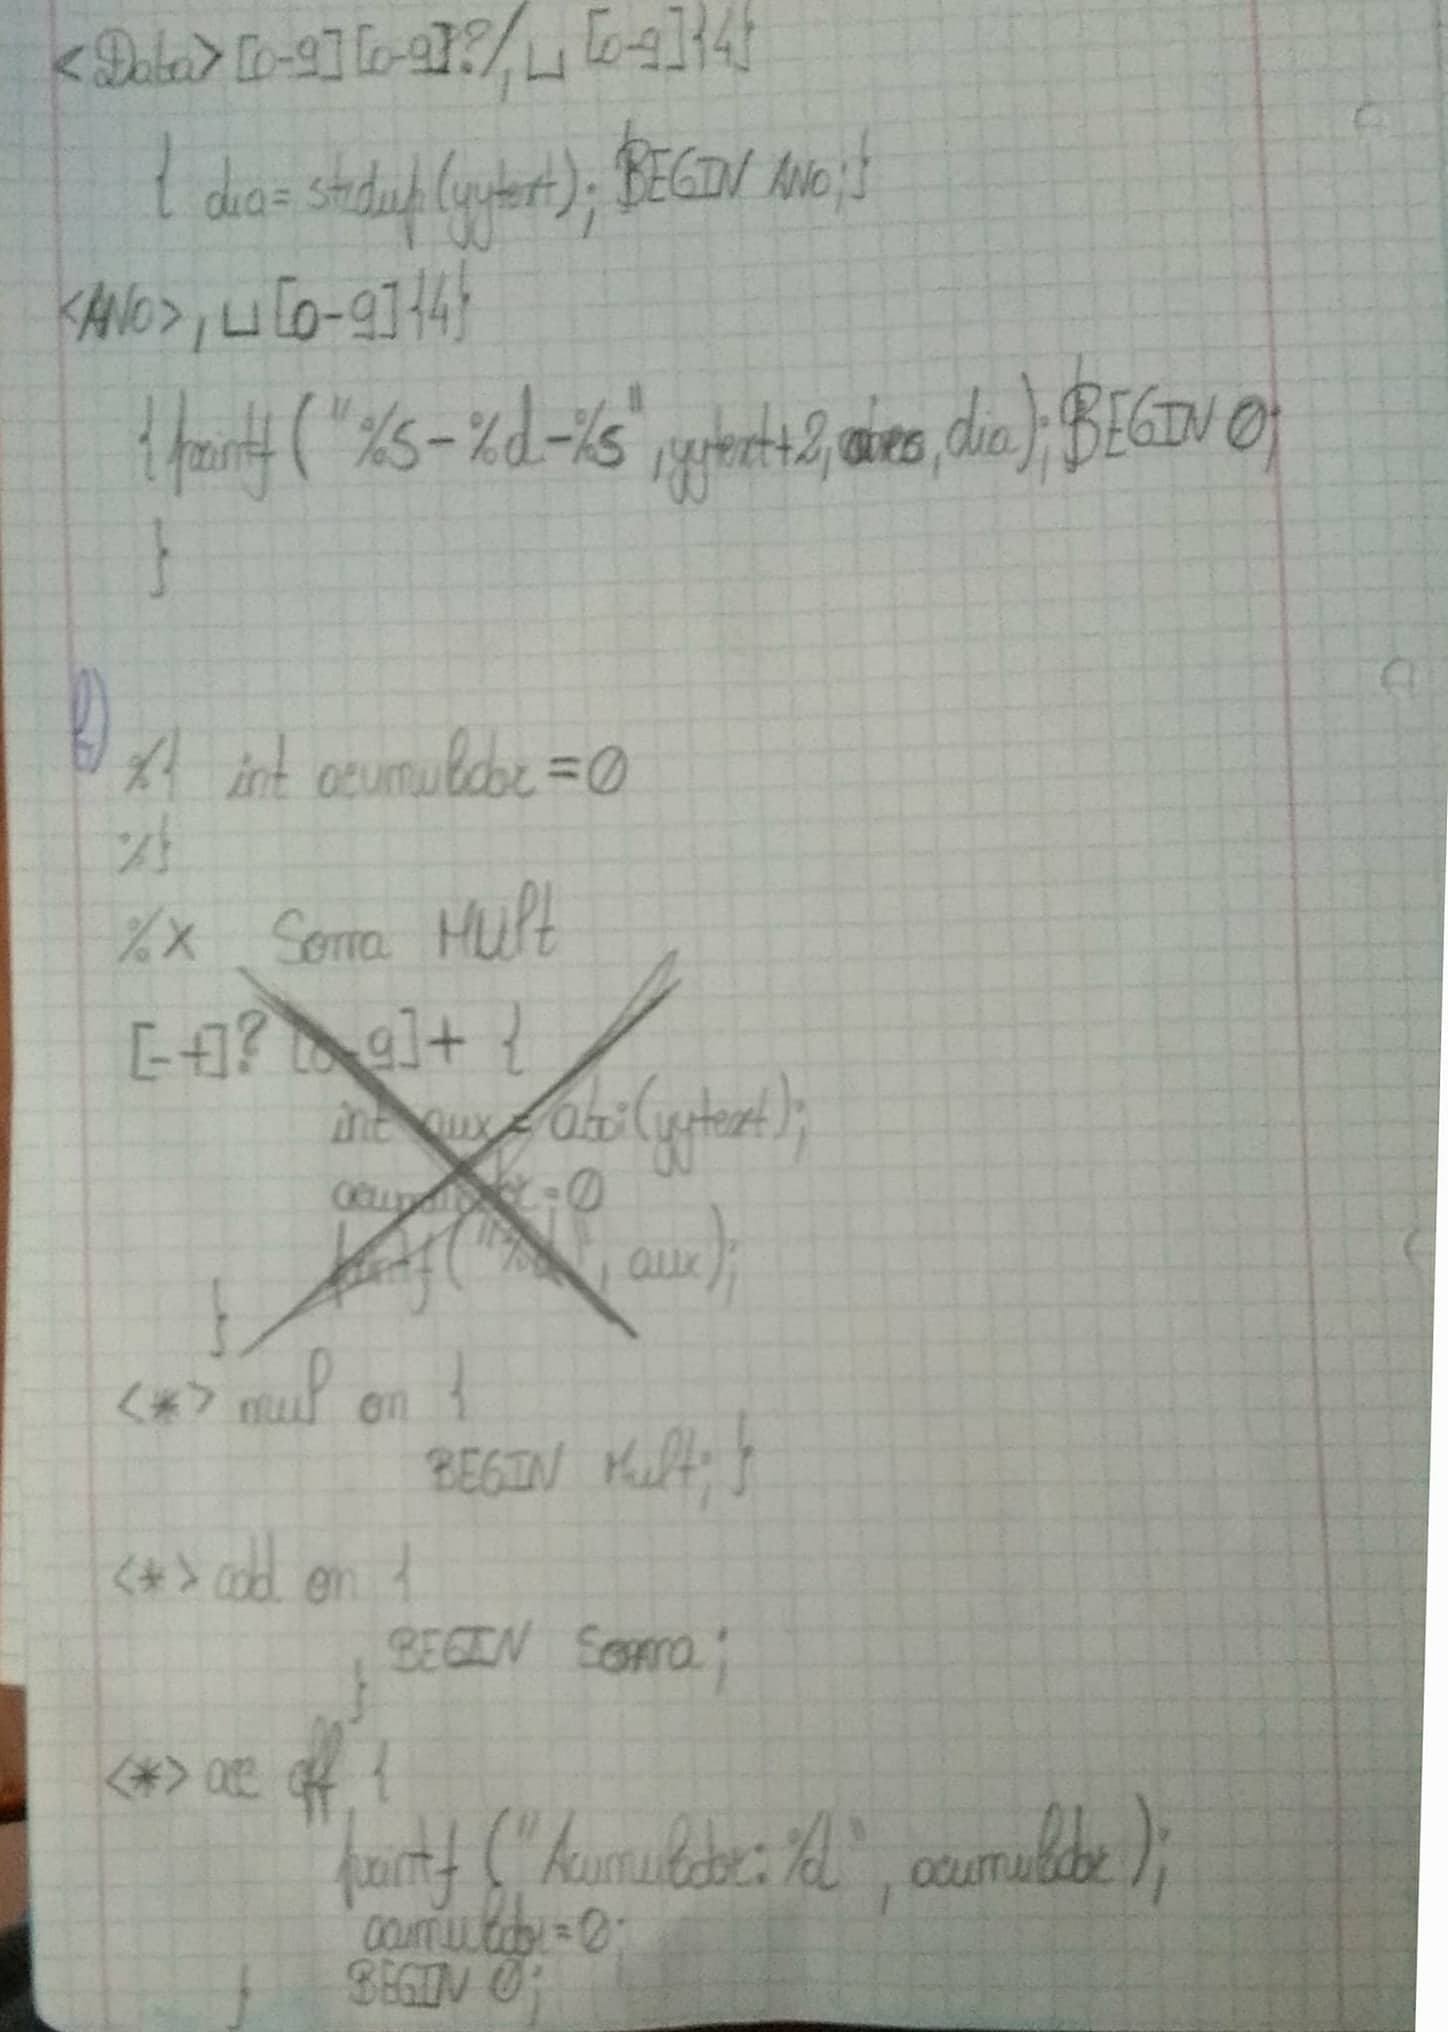 <Data>[0-9][0-9]?/,␣[0-9]{4}
{ dia=strdup(yytext); BEGIN ANO;}
<ANO>,␣[0-9]{4}
{printf("%s-%d-%s",yytext+2, ,dia);BEGIN 0;
}
b)
%{ int acumulador=0
%}
%x Soma Mult
[-+]?[0-9]+ {
int aux = atoi(yytext);
acumulador=0
printf("%d", aux);
}
<*> mul on {
BEGIN Mult; }
<*> add on {
BEGIN Soma;
}
<*> acc off {
printf("Acumulador: %d", acumulador);
acumulador=0;
} BEGIN 0;